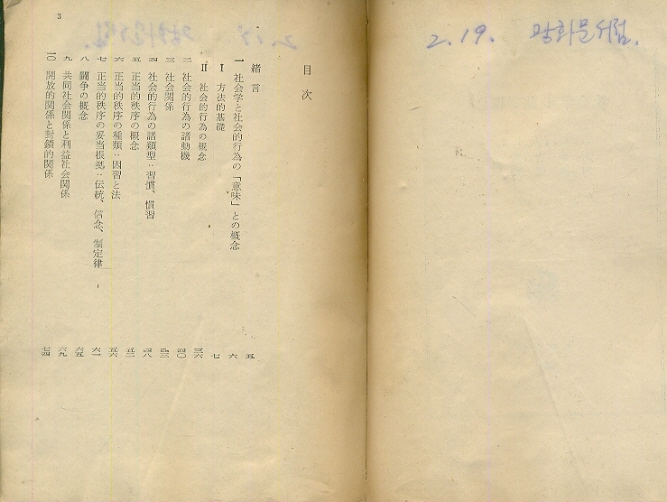 2.19. 광화문서림.
目次
緒言 五
一 社会学と社会的行為の「意味」との概念 六
Ⅰ 方法的基礎 七
Ⅱ 社会的行為の概念 三六
二 社会的行為の諸動機 四〇
三 社会関係 四三
四 社会的行為の諸類型：習慣、慣習 四八
五 正当的秩序の概念 五二
六 正当的秩序の種類：因習と法 五六
七 正当的秩序の妥当根拠：伝統、信念、制定律 六一
八 闘争の概念 六五
九 共同社会関係と利益社会関係 六九
一〇 開放的関係と封鎖的関係 七四
3